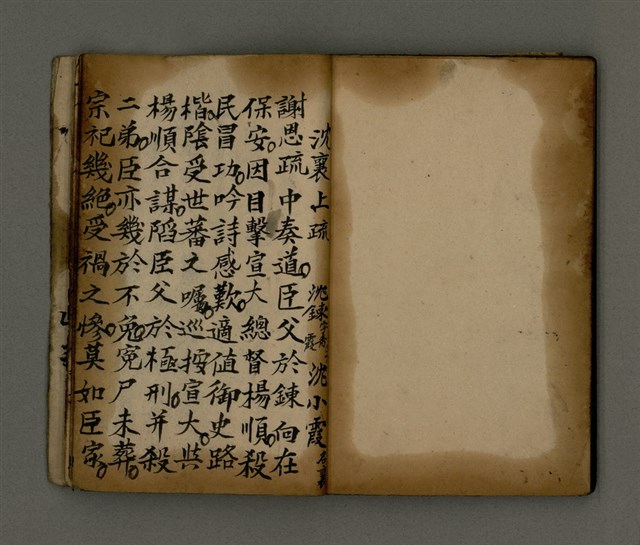 沈襄上疏 沈鍊 沈小霞
謝恩疏中奏道。臣父於鍊向在
保安。因目擊宣大總督楊順。殺
民冒功。吟詩感歎。適值御史路
楷。陰受世蕃之囑。巡按宣大。與
楊順合謀。陷臣父於極刑。并殺
二弟。臣亦幾於不免。冤尸未葬。
宗祀幾絕。受禍之慘。莫如臣家。